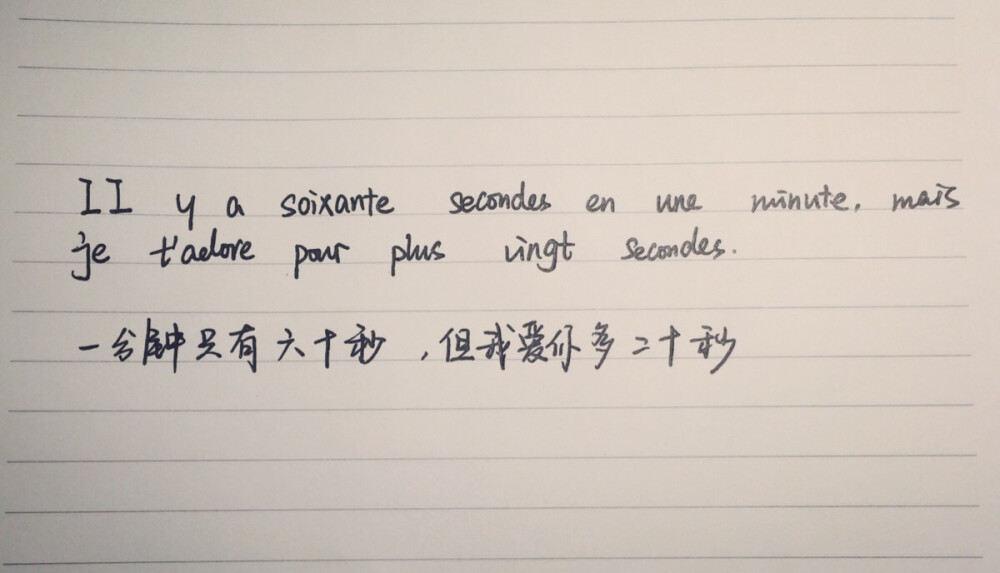 II y a soixante secondes en une minute, mais
je t'adore pour plus vingt secondes.
一分钟只有六十秒，但我爱你多二十秒